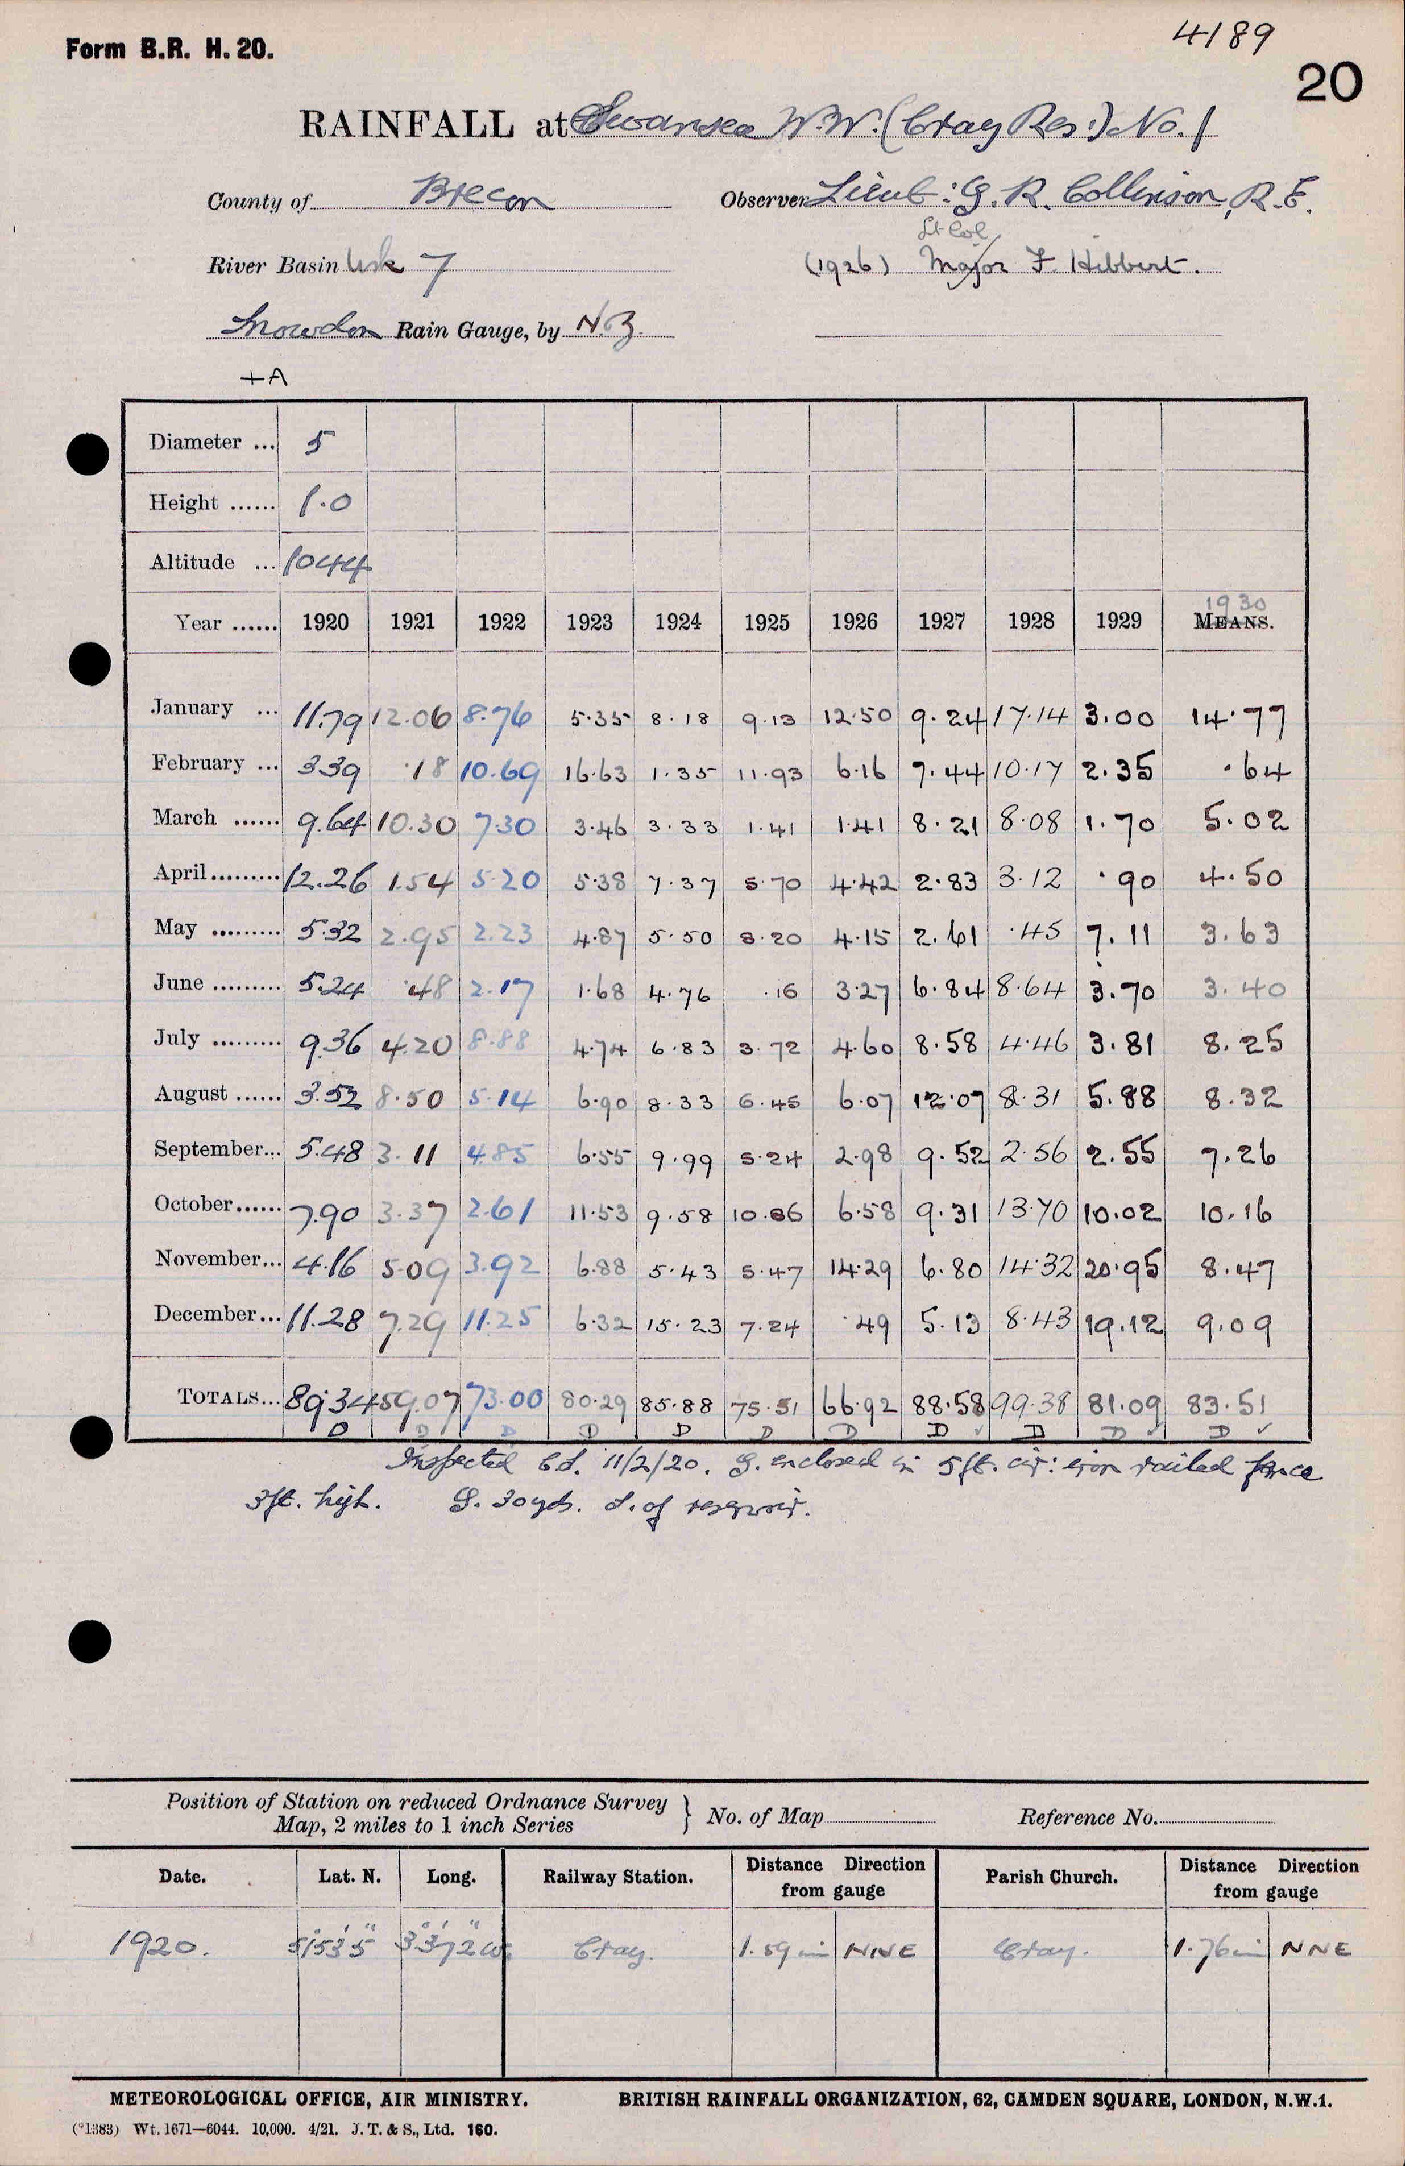 4189
Form B.R. H. 20.
20
RAINFALL at Swansea W.W. (Cray Res:) No. 1
County of Brecon Observer Lieut: G. R. Collinson, R.E.
Lt Col
River Basin Usk 7 (1926) Major F. Hibbert.
Snowdon Rain Gauge, by N.Z.
+A
Diameter ... 5
Height ...... 1.0
Altitude ... 1044
1930
Year ...... 1920 1921 1922 1923 1924 1925 1926 1927 1928 1929 MEANS.
January ... 11.79 12.06 8.76 5.35 8.18 9.13 12.50 9.24 17.14 3.00 14.77
February ... 3.39 .18 10.69 16.63 1.35 11.93 6.16 7.44 10.17 2.35 .64
March ...... 9.64 10.30 7.30 3.46 3.33 1.41 1.41 8.21 8.08 1.70 5.02
April ......... 12.26 1.54 5.20 5.38 7.37 5.70 4.42 2.83 3.12 .90 4.50
May ......... 5.32 2.95 2.23 4.87 5.50 8.20 4.15 2.61 .45 7.11 3.63
June ......... 5.24 .48 2.17 1.68 4.76 .16 3.27 6.84 8.64 3.70 3.40
July ......... 9.36 4.20 8.88 4.74 6.83 3.72 4.60 8.58 4.46 3.81 8.25
August ...... 3.52 8.50 5.14 6.90 8.33 6.45 6.07 12.07 8.31 5.88 8.32
September... 5.48 3.11 4.85 6.55 9.99 5.24 2.98 9.52 2.56 2.55 7.26
October...... 7.90 3.37 2.61 11.53 9.58 10.86 6.58 9.31 13.70 10.02 10.16
November... 4.16 5.09 3.92 6.88 5.43 5.47 14.29 6.80 14.32 20.95 8.47
December... 11.28 7.29 11.25 6.32 15.23 7.24 .49 5.13 8.43 19.12 9.09
TOTALS... 89.34 59.07 73.00 80.29 85.88 75.51 66.92 88.58 99.38 81.09 83.51
D D D D D D D D ✓ D D ✓ D ✓
Inspected 11/2/20. G. enclosed in 5ft. cir: iron railed fence
3ft. high. G. 30yds. of reservoir.
Position of Station on reduced Ordnance Survey
Map, 2 miles to 1 inch Series } No. of Map Reference No.
Date. Lat. N. Long. Railway Station. Distance Direction from gauge Parish Church. Distance Direction from gauge
1920. 51°53'5" 3°37'2"W. Cray. 1.59 mi NNE Cray. 1.76 mi NNE
METEOROLOGICAL OFFICE, AIR MINISTRY. BRITISH RAINFALL ORGANIZATION, 62, CAMDEN SQUARE, LONDON, N.W.1.
(*1383) Wt. 1671—6044. 10,000. 4/21. J. T. & S., Ltd. 160.